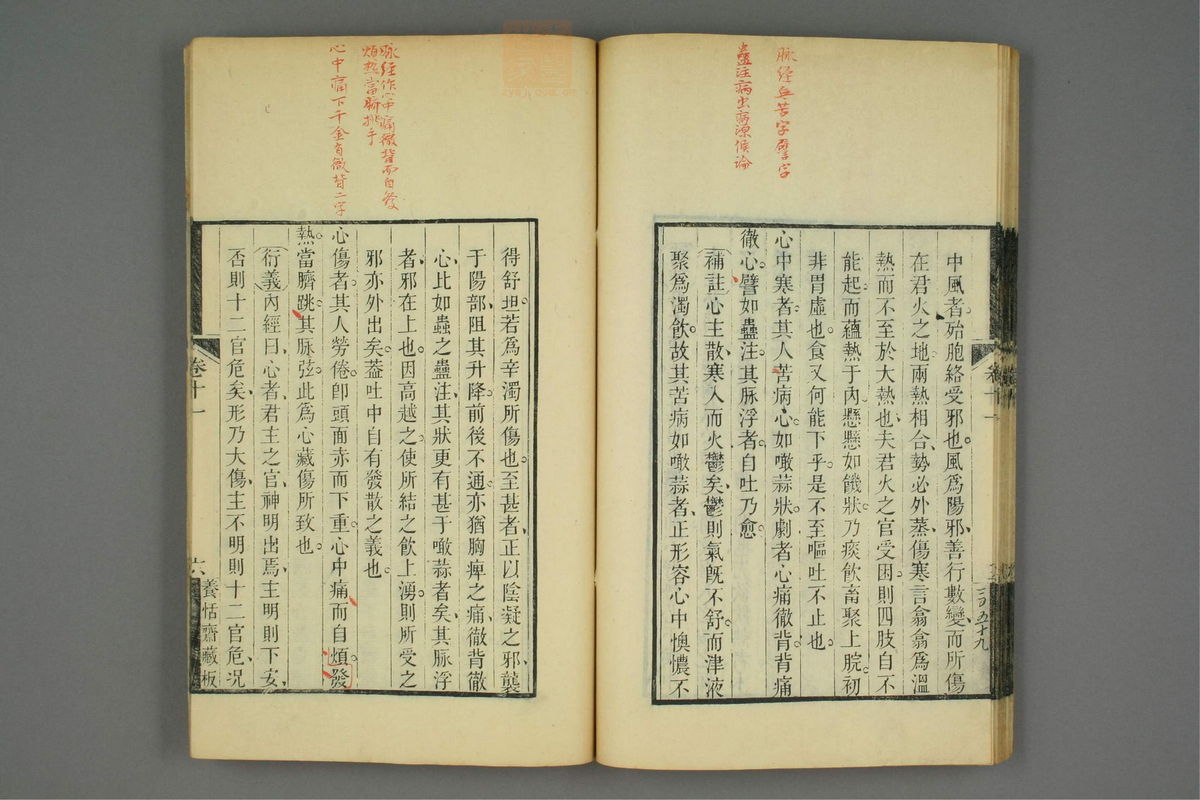 脉經無苦字譬字
蠱注病出病源候論
中風者殆胞絡受邪也風爲陽邪善行數變而所傷
在君火之地兩熱相合勢必外蒸傷寒言翕翕爲溫
熱而不至於大熱也夫君火之官受困則四肢自不
能起而蘊熱于內懸懸如饑狀乃痰飲畜聚上脘初
非胃虛也食又何能下乎是不至嘔吐不止也
心中寒者其人苦病心如噉蒜狀劇者心痛徹背背痛
徹心譬如蠱注其脉浮者自吐乃愈
補註心主散寒入而火鬱矣鬱則氣旣不舒而津液
聚爲濁飲故其苦病如噉蒜者正形容心中懊憹不
卷十一
三百五十九
脉經作心中痛徹背而自發
煩熱當臍挑手
心中痛下千金有徹背二字
得舒坦若爲辛濁所傷也至甚者正以陰凝之邪襲
于陽部阻其升降前後不通亦猶胸痺之痛徹背徹
心比如蟲之蠱注其狀更有甚于噉蒜者矣其脉浮
者邪在上也因高越之使所結之飲上湧則所受之
邪亦外出矣葢吐中自有發散之義也
心傷者其人勞倦卽頭面赤而下重心中痛而自煩發
熱當臍跳其脉弦此爲心藏傷所致也
衍義內經曰心者君主之官神明出焉主明則下安
否則十二官危矣形乃大傷主不明則十二官危况
卷十一
六
養恬齋藏板